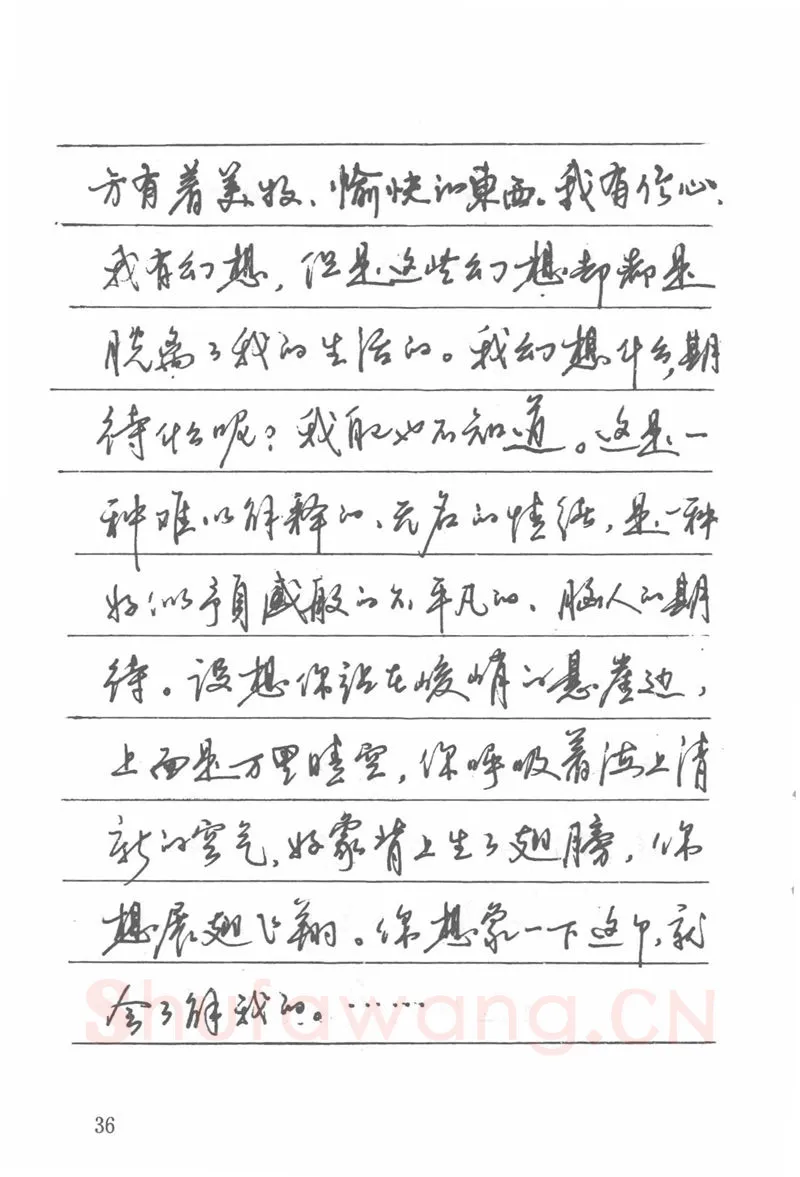 方有着美妙、愉快的東西。我有信心、
我有幻想，但是这些幻想却都是
脱离了我的生活的。我幻想什么，期
待什么呢？我自己也不知道。这是一
种难以解释的、无名的情绪，是一种
好似预感般的不平凡的、恼人的期
待。设想你站在峻峭的悬崖边，
上面是万里晴空，你呼吸着海上清
新的空气，好象背上生了翅膀，你
想展翅飞翔。你想象一下这个，就
会了解我的。……
Shufawang.CN
36